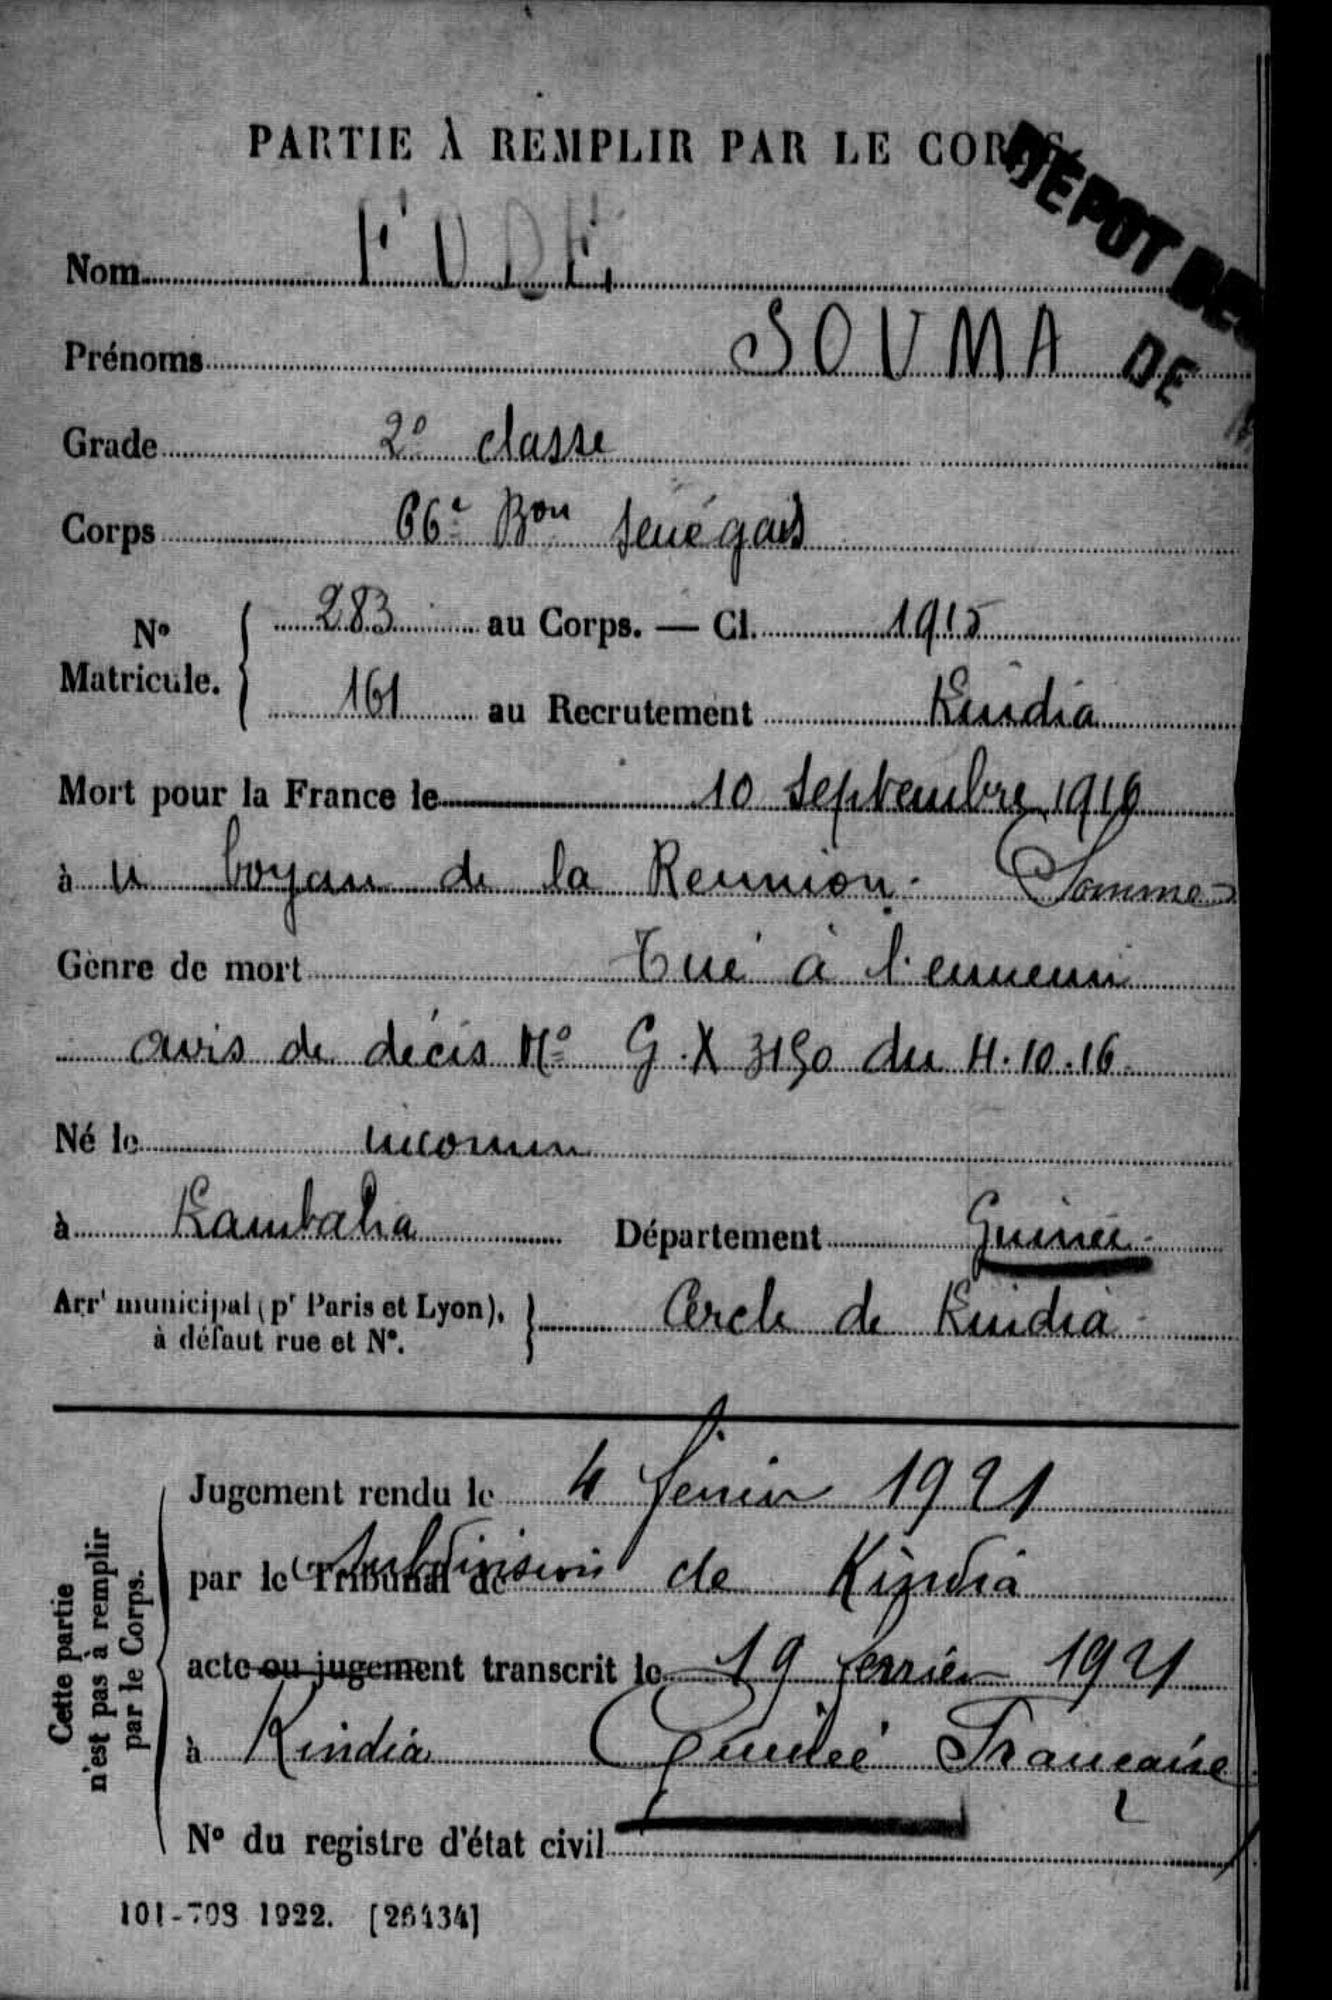 PARTIE À REMPLIR PAR LE CORPS.
DÉPOT DES
DE
Nom FODE
Prénoms SOUMA
Grade 2e classe
Corps 66e Bon Sénégais
No Matricule. { 283 au Corps. — Cl. 1915
161 au Recrutement Kindia
Mort pour la France le 10 Septembre 1916
à boyau de la Réunion. Somme
Genre de mort Tué à l'ennemi
avis de décès No G.X 3190 du 4.10.16
Né le inconnu
à Kambaha Département Guinée
Arrt municipal (pr Paris et Lyon), à défaut rue et No. } Cercle de Kindia
Cette partie n'est pas à remplir par le Corps.
Jugement rendu le 4 février 1921
par le Tribunal de Subdivision de Kindia
acte ou jugement transcrit le 19 février 1921
à Kindia Guinée Française
No du registre d'état civil
101-708 1922. [26434]